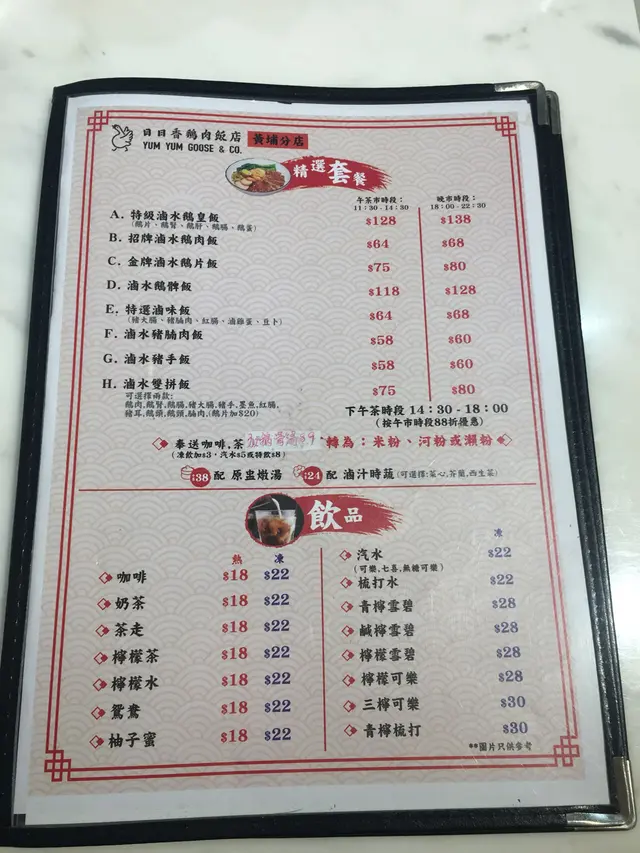 日日香鵝肉飯店 黃埔分店
YUM YUM GOOSE & CO.
精選套餐
午茶市時段： 晚市時段：
11:30 - 14:30 18:00 - 22:30
A. 特級滷水鵝皇飯 $128 $138
(鵝片、鵝腎、鵝肝、鵝腸、鵝蛋)
B. 招牌滷水鵝肉飯 $64 $68
C. 金牌滷水鵝片飯 $75 $80
D. 滷水鵝髀飯 $118 $128
E. 特選滷味飯 $64 $68
(豬大腸、豬腩肉、紅腸、滷雞蛋、豆卜)
F. 滷水豬腩肉飯 $58 $60
G. 滷水豬手飯 $58 $60
H. 滷水雙拼飯 $75 $80
可選擇兩款:
鵝肉,鵝腎,鵝腸,豬大腸,豬手,墨魚,紅腸,
豬耳,鵝頭,鵝頸,腩肉,(鵝片加$20)
下午茶時段 14:30 - 18:00
(按午市時段88折優惠)
奉送咖啡,茶 轉為：米粉、河粉或瀨粉
(凍飲加$3，汽水$5或特飲$8)
$38 配 原盅燉湯 $24 配 滷汁時蔬 (可選擇:菜心,芥蘭,西生菜)
飲品
熱 凍
咖啡 $18 $22
奶茶 $18 $22
茶走 $18 $22
檸檬茶 $18 $22
檸檬水 $18 $22
鴛鴦 $18 $22
柚子蜜 $18 $22
凍
汽水 $22
(可樂,七喜,無糖可樂)
梳打水 $22
青檸雪碧 $28
鹹檸雪碧 $28
檸檬雪碧 $28
檸檬可樂 $28
三檸可樂 $30
青檸梳打 $30
**圖片只供參考